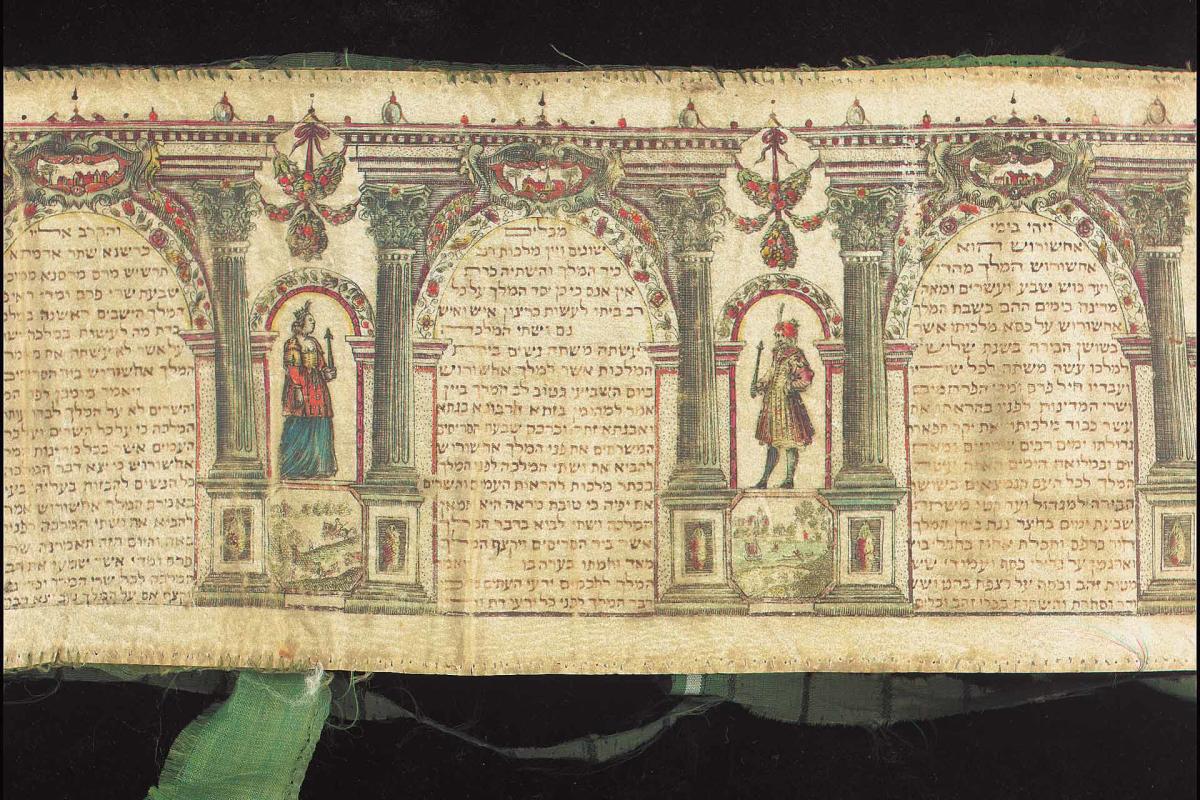 ויהי בימי
אחשורוש הוא
אחשורוש המלך מהדו
ועד כוש שבע ועשרים ומאה
מדינה בימים ההם כשבת המלך
אחשורוש על כסא מלכותו אשר
בשושן הבירה בשנת שלוש
למלכו עשה משתה לכל שריו
ועבדיו חיל פרס ומדי הפרתמים
ושרי המדינות לפניו בהראתו את
עשר כבוד מלכותו ואת יקר תפארת
גדולתו ימים רבים
יום ובמלואת הימים
המלך לכל העם הנמצאים בשושן
הבירה למגדול ועד קטן משתה
שבעת ימים בחצר גנת ביתן המלך
חור כרפס ותכלת אחוז בחבלי בוץ
וארגמן על גלילי כסף ועמודי שש
מטות זהב וכסף על רצפת בהט ושש
ודר וסחרת והשקות בכלי זהב וכלים
מכלים
שונים ויין מלכות רב
כיד המלך והשתיה כדת
אין אנס כי כן יסד המלך על כל
רב ביתו לעשות כרצון איש ואיש
גם ושתי המלכה
עשתה משתה נשים בית
המלכות אשר למלך אחשורוש
ביום השביעי כטוב לב המלך ביין
אמר למהומן בזתא חרבונא בגתא
ואבגתא זתר וכרכס שבעת הסריסים
המשרתים את פני המלך אחשורוש
להביא את ושתי המלכה לפני המלך
בכתר מלכות להראות העמים והשרים
את יפיה כי טובת מראה היא ותמאן
המלכה ושתי לבוא בדבר המלך
אשר ביד הסריסים ויקצף המלך
מאד וחמתו בערה בו ויאמר
המלך לחכמים ידעי העתים
דבר המלך לפני כל ידעי דת ודין
והקרב אליו
כרשנא שתר אדמתא
תרשיש מרס מרסנא ממוכן
שבעת שרי פרס ומדי
המלך הישבים ראשנה במלכות
כדת מה לעשות במלכה
על אשר לא עשתה את
המלך אחשורוש ביד הסריסים
ויאמר מומכן לפני
והשרים לא על המלך לבדו עותה
המלכה כי על כל השרים ועל כל
העמים אשר בכל מדינות המלך
אחשורוש כי יצא דבר המלכה
על כל הנשים להבזות בעליהן
באמרם המלך אחשורוש אמר
להביא את ושתי המלכה לפניו
באה והיום הזה תאמרנה
פרס ומדי אשר שמעו את דבר
המלכה לכל שרי המלך וכדי
וקצף אם על המלך טוב יצא